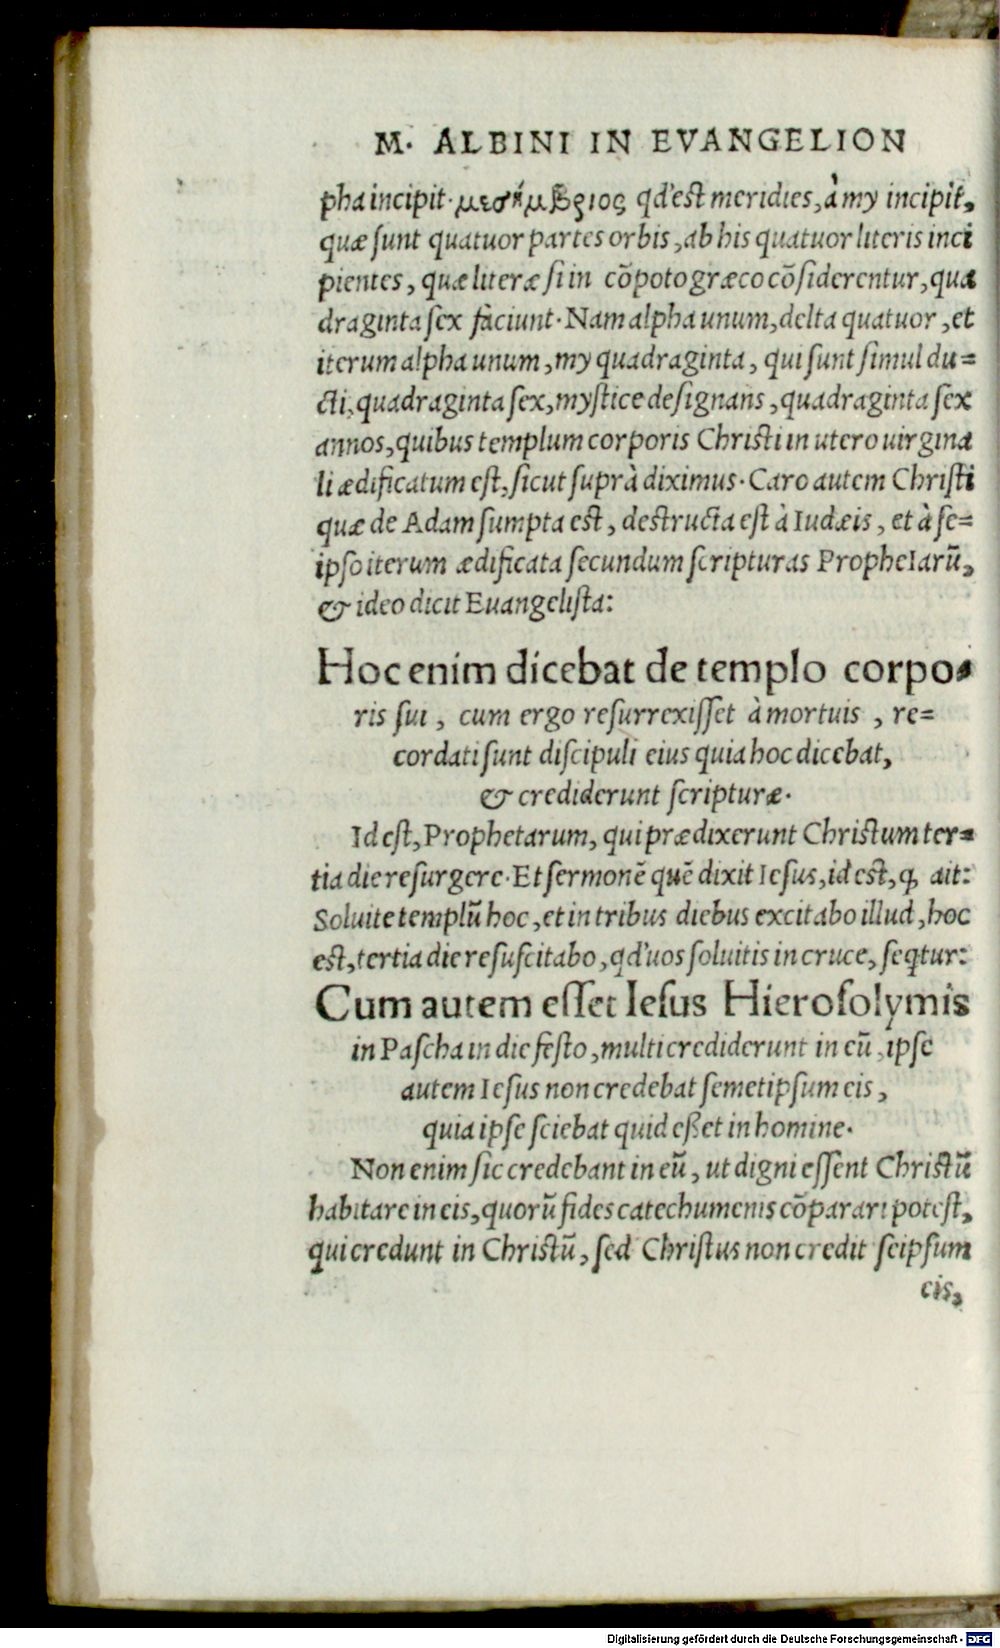 M. ALBINI IN EVANGELION
pha incipit. μεσημβριος qd' est meridies, à my incipit,
quæ sunt quatuor partes orbis, ab his quatuor literis inci
pientes, quæ literæ si in cõpoto græco cõsiderentur, qua
draginta sex faciunt. Nam alpha unum, delta quatuor, et
iterum alpha unum, my quadraginta, qui sunt simul du=
cti, quadraginta sex, mystice designans, quadraginta sex
annos, quibus templum corporis Christi in utero uirgina
li ædificatum est, sicut suprà diximus. Caro autem Christi
quæ de Adam sumpta est, destructa est à Iudæis, et à se=
ipso iterum ædificata secundum scripturas PropheIarũ,
& ideo dicit Euangelista:
Hoc enim dicebat de templo corpo=
ris sui, cum ergo resurrexisset à mortuis, re=
cordati sunt discipuli eius quia hoc dicebat,
& crediderunt scripturæ.
Id est, Prophetarum, qui prædixerunt Christum ter=
tia die resurgere. Et sermonẽ quẽ dixit Iesus, id est, ꝙ ait:
Soluite templũ hoc, et in tribus diebus excitabo illud, hoc
est, tertia die resuscitabo, qd' uos soluitis in cruce, seq̃tur:
Cum autem esset Iesus Hierosolymis
in Pascha in die festo, multi crediderunt in eũ, ipse
autem Iesus non credebat semetipsum eis,
quia ipse sciebat quid eßet in homine.
Non enim sic credebant in eũ, ut digni essent Christũ
habitare in eis, quorũ fides catechumenis cõparari potest,
qui credunt in Christũ, sed Christus non credit seipsum
eis,
Digitalisierung gefördert durch die Deutsche Forschungsgemeinschaft - DFG